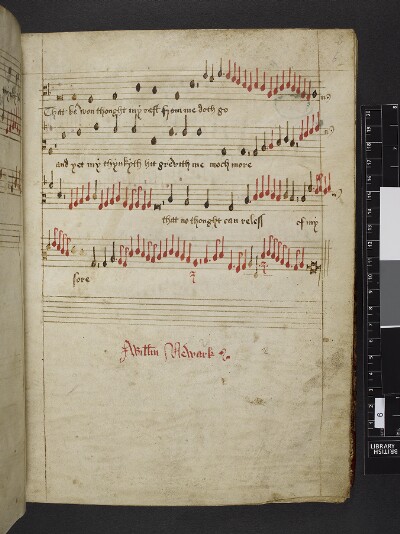 That be won thought my rest from me doth go
and yet my thynkyth hit grevith me moch more
that no thought can reless of my
sore
Willm Newark
LIBRARY
BRITISH